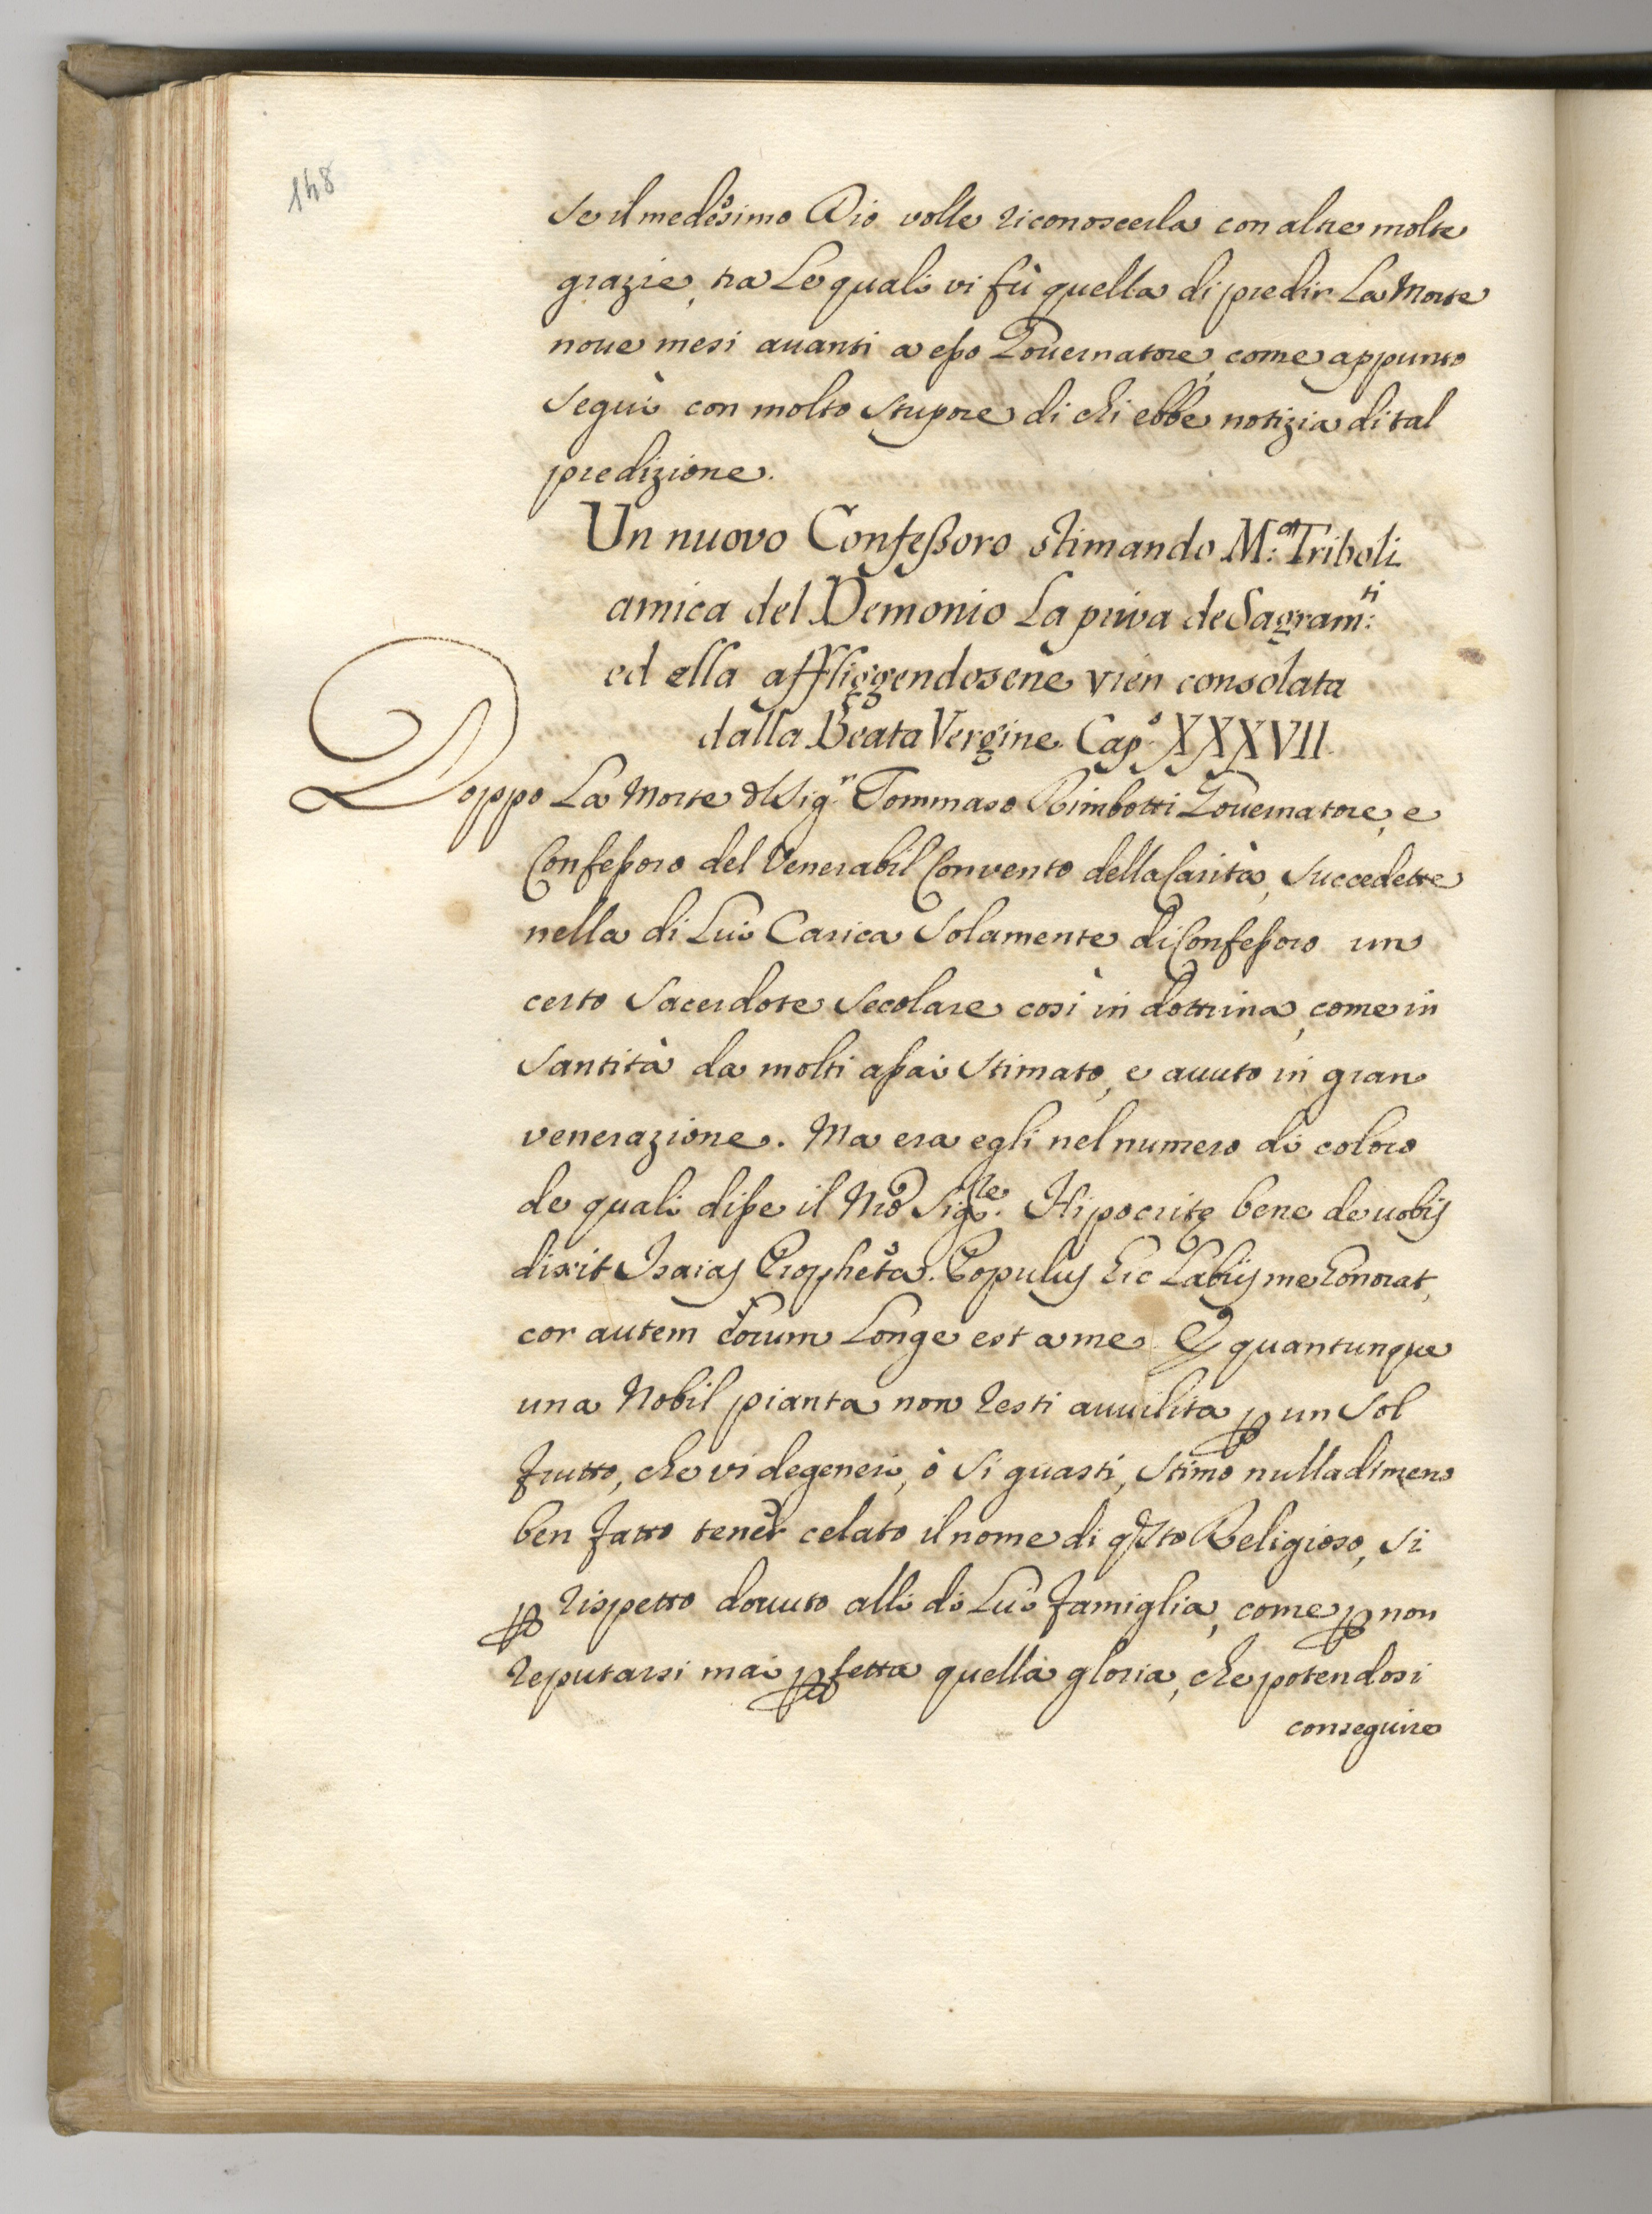 148
se il medesimo Dio volle riconoscerla con altre molte
grazie, tra Le quali vi fù quella di predir La Morte
noue mesi auanti a esso Gouernatore, come appunto
seguì con molto stupore di chi ebbe notizia di tal
predizione.
Un nuovo Confeßoro stimando M:ª Triboli
amica del Demonio La priva de Sagram:ti
ed ella affliggendosene vien consolata
dalla Beata Vergine. Cap.º XXXVII.
Doppo La Morte dl Sig.r Tommaso Rimbotti Gouernatore, e
Confessoro del Venerabil Convento della Carità, succedette
nella di Lui Carica solamente di Confessoro un
certo Sacerdote Secolare così in dottrina, come in
Santità da molti assai stimato, e auuto in gran
venerazione. Ma era egli nel numero di coloro
de quali disse il Nrõ Sig.re Hipocritę bene de uobis
dixit Isaias Propheta. Populus hic Labijs me honorat,
cor autem eorum Longe est a me. E quantunque
una Nobil pianta non resti auuilita ꝑ un sol
frutto, che vi degeneri, ò si guasti, stimo nulladimeno
ben fatto tener celato il nome di qsto Religioso, si
ꝑ rispetto douuto alli di Lui famiglia, come ꝑ non
reputarsi mai ꝑfetta quella gloria, che potendosi
conseguire